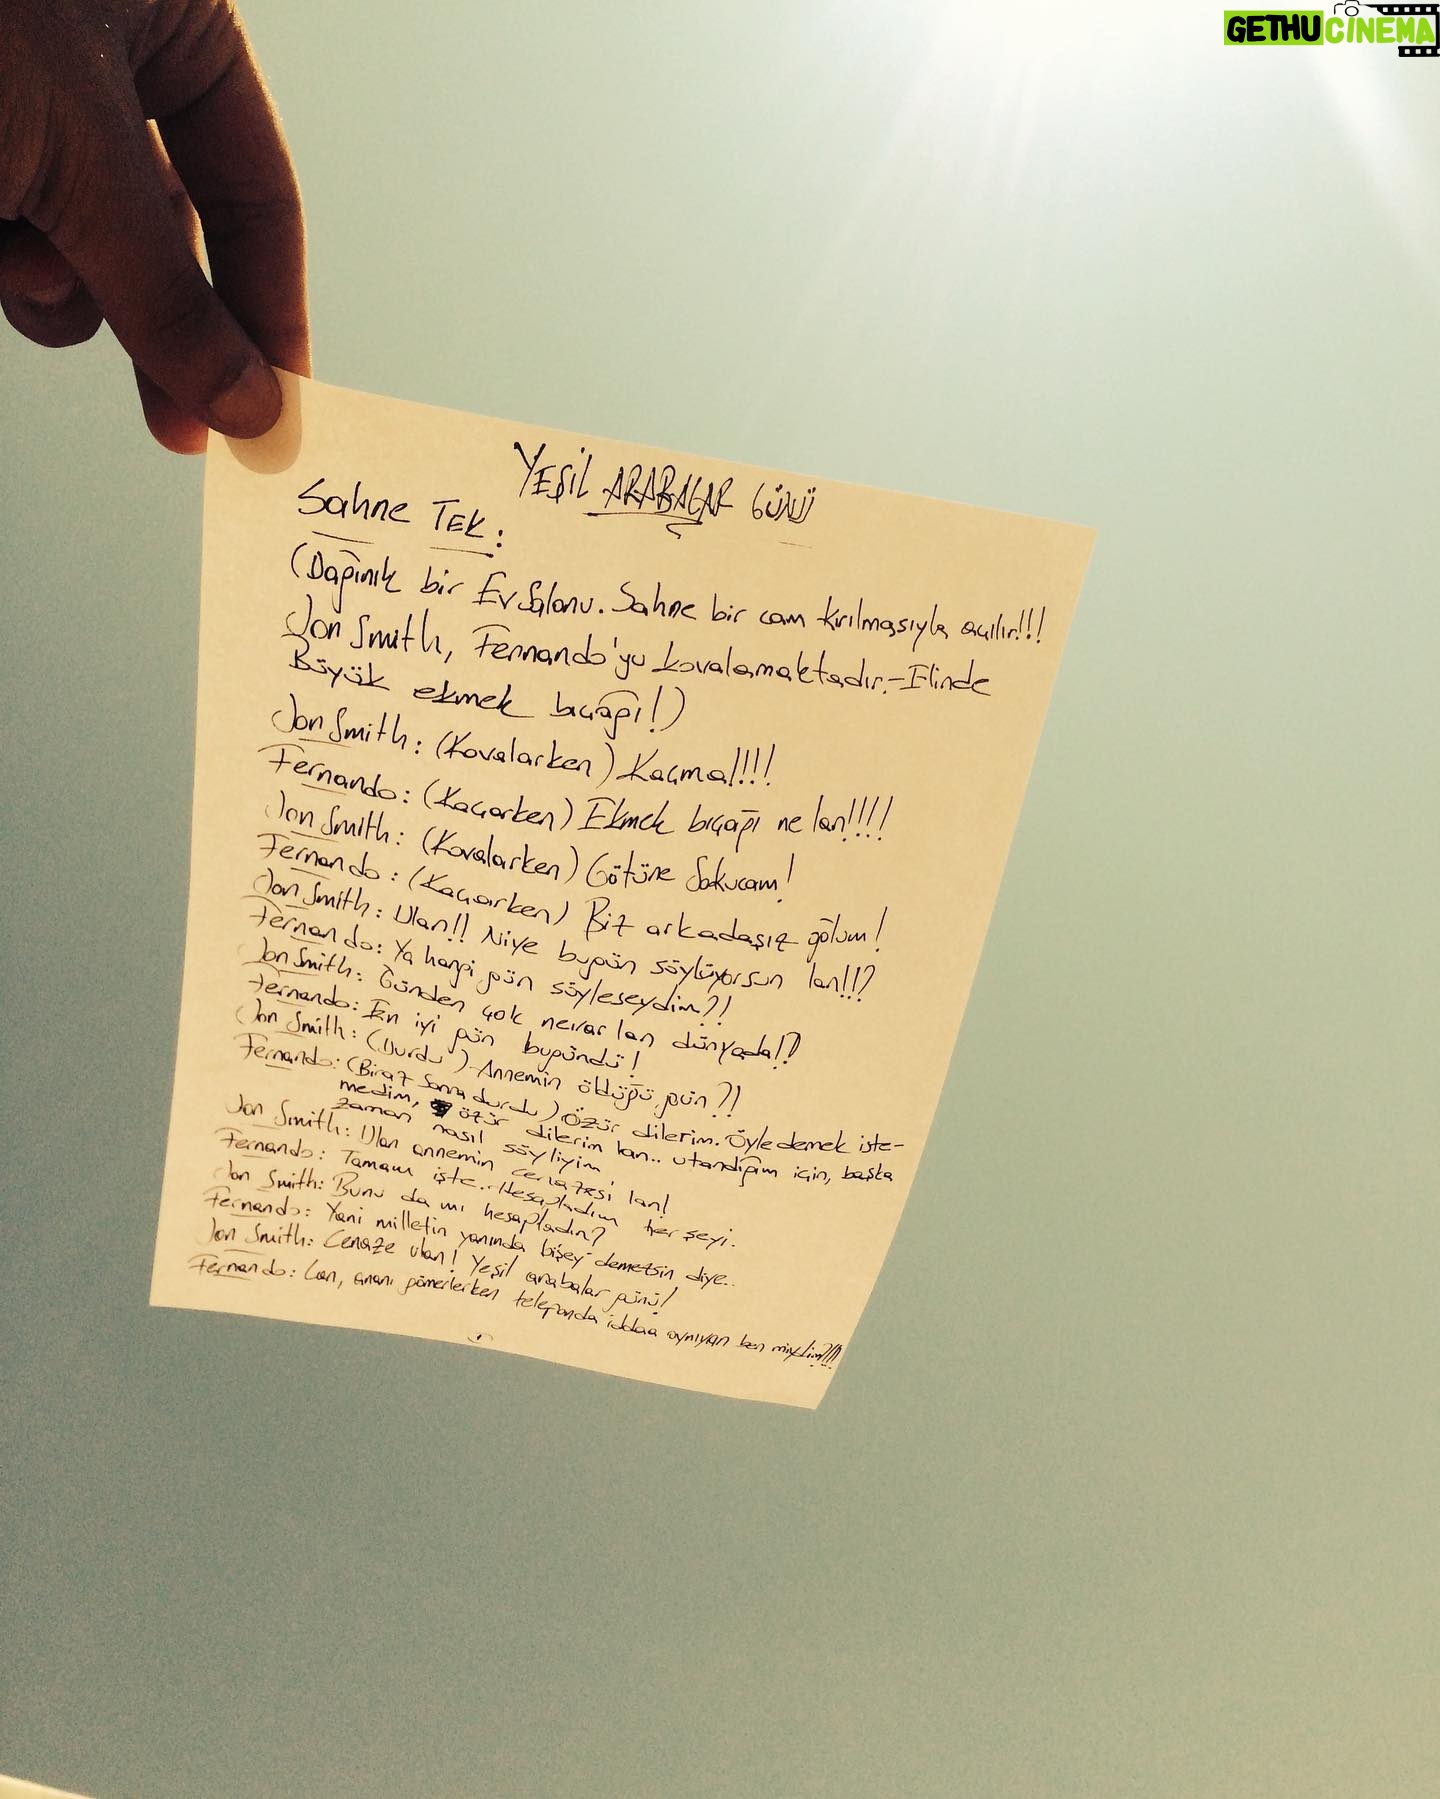 GETHUCINEMA
YEŞİL ARABALAR GÜNÜ
Sahne TEK:
(Dağınık bir Ev Salonu. Sahne bir cam kırılmasıyla açılır!!!
Jon Smith, Fernando'yu kovalamaktadır.-Elinde
Büyük ekmek bıçağı!)
Jon Smith: (Kovalarken) Kaçma!!!!
Fernando: (Kaçarken) Ekmek bıçağı ne lan!!!!
Jon Smith: (Kovalarken) Götüne Sokucam!
Fernando: (Kaçarken) Biz arkadaşız oğlum!
Jon Smith: Ulan!! Niye bugün söylüyorsun lan!!!?
Fernando: Ya hangi gün söyleseydim?!
Jon Smith: Günden çok ne var lan dünyada!?
Fernando: En iyi gün bugündü!
Jon Smith: (Durdu) -Annemin öldüğü gün?!
Fernando: (Biraz Sonra durdu) Özür dilerim. Öyle demek iste-
medim, özür dilerim lan.. utandığım için, başka
zaman nasıl söyliyim
Jon Smith: Ulan annemin cenazesi lan!
Fernando: Tamam işte.. Hesapladım her şeyi.
Jon Smith: Bunu da mı hesapladın?
Fernando: Yani milletin yanında bişey demezsin diye..
Jon Smith: Cenaze ulan! Yeşil arabalar günü!
Fernando: Lan, ananı gömerlerken telefonda iddaa oynıyan ben miydim?!!!